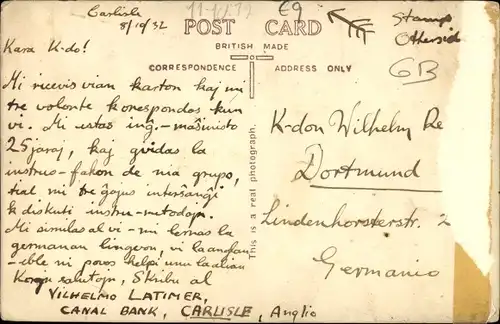 Carlisle
8/10/32
E9
Stamp
Otherside
POST CARD
BRITISH MADE
6B
CORRESPONDENCE
ADDRESS ONLY
Kara K-do!
Mi ricevis vian karton kaj mi
tre volonte korespondos kun
vi. Mi estas ing-maŝinisto
25jaraj, kaj gvidas la
instruo-fakon de nia grupo,
tial mi tre ĝojus interŝanĝi
k diskuti instru-metodojn.
Mi similas al vi - mi lernas la
germanan lingvon, vi la anglan
-eble ni povos helpi unu la alian
Korajn salutojn, Skribu al
VILHELMO LATIMER,
CANAL BANK, CARLISLE, Anglio
This is a real photograph.
K-don Wilhelm
Dortmund
Lindenhorsterstr. 2
Germanio